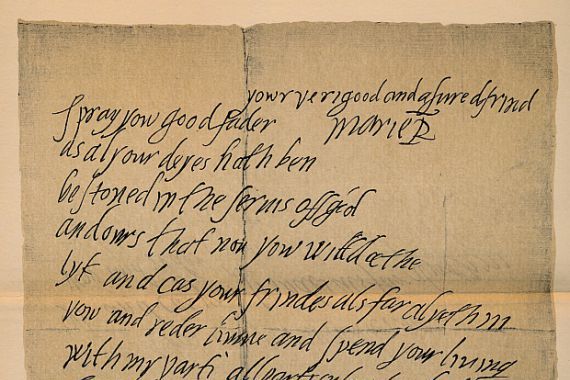 yowr veri good and asured frind
Marie R
I pray you good fader
as al your deyes hath ben
bestoued in the servis off god
and ours that now yow will do the
lyk and cas your frindes als far as
yow and and spend your living
with my parti